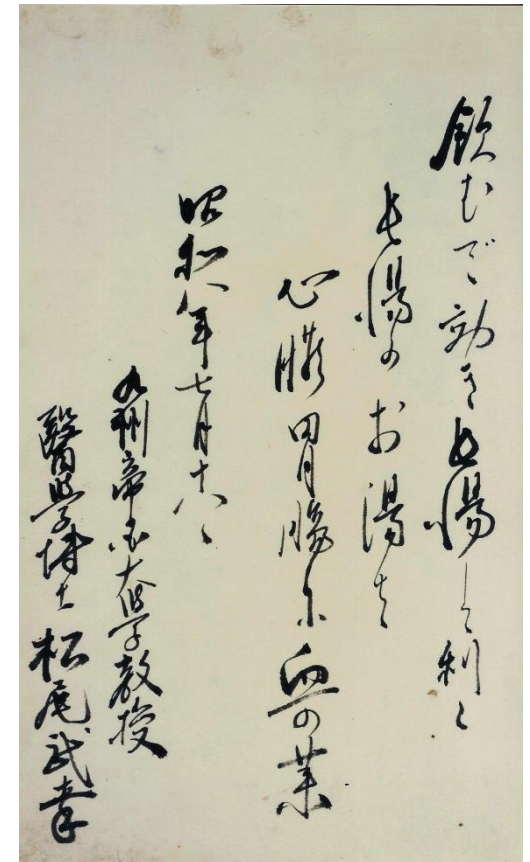 飲むで効き長湯して利く
長湯のお湯は
心臓胃腸に血の薬
昭和八年七月十八日
九州帝国大學教授
醫學博士 松尾武幸